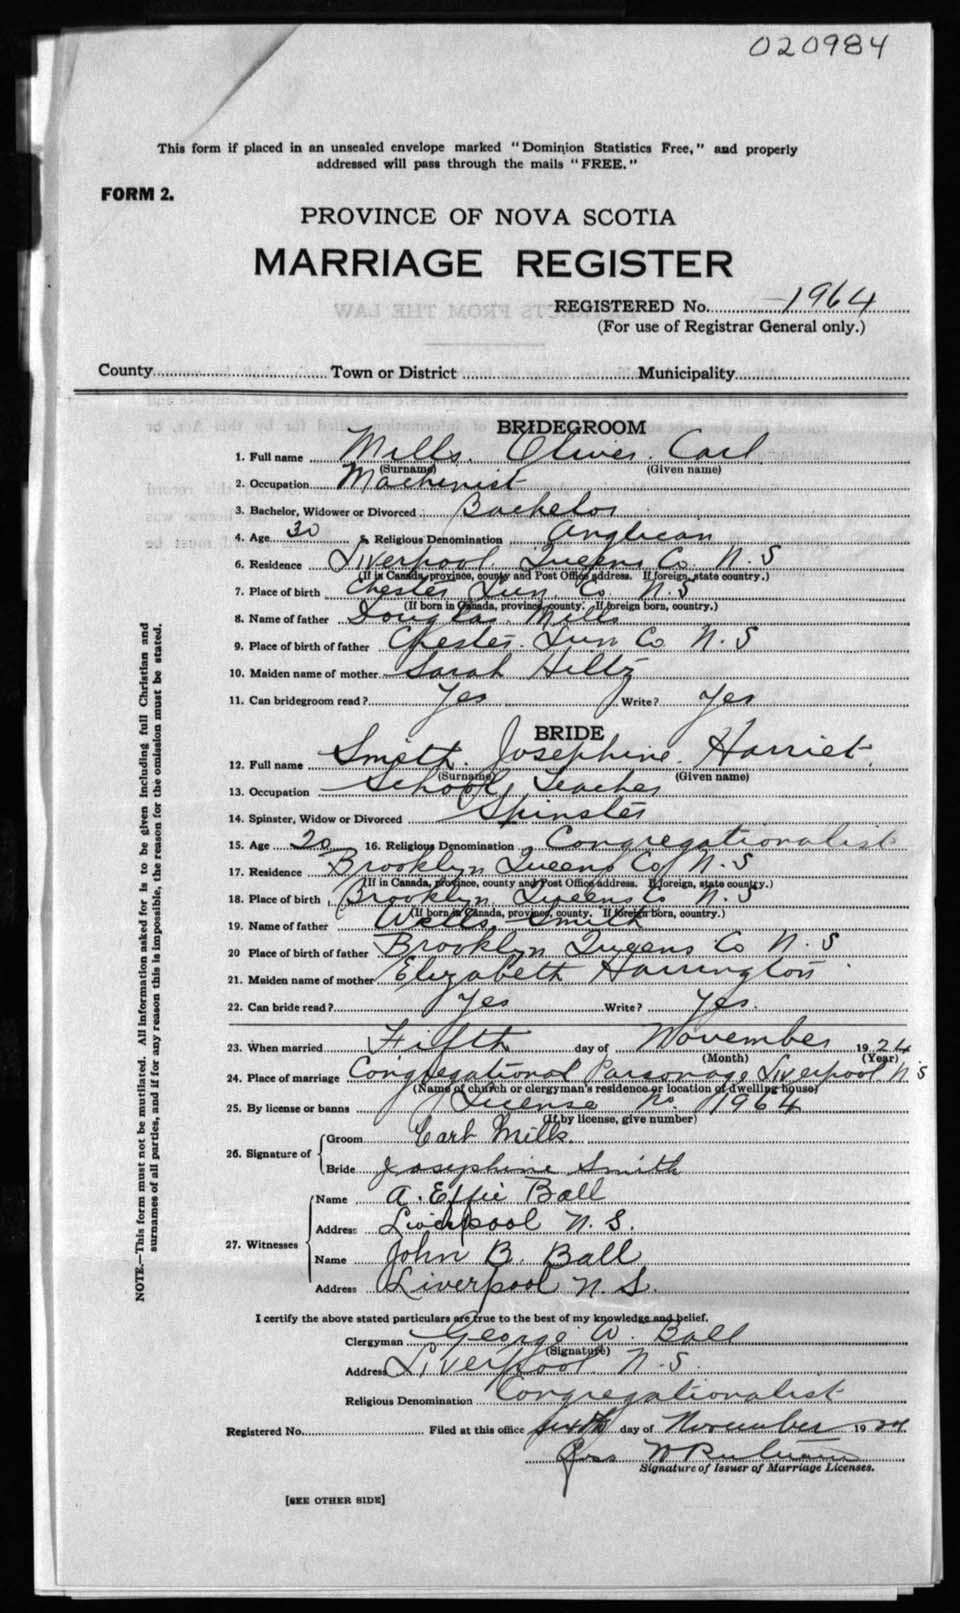 020984
This form if placed in an unsealed envelope marked "Dominion Statistics Free," and properly
addressed will pass through the mails "FREE."
FORM 2.
PROVINCE OF NOVA SCOTIA
MARRIAGE REGISTER
REGISTERED No. 1964
(For use of Registrar General only.)
County Town or District Municipality
BRIDEGROOM
1. Full name Mills. Oliver. Carl
(Surname) (Given name)
2. Occupation Machinist
3. Bachelor, Widower or Divorced Bachelor
4. Age 30 5. Religious Denomination Anglican
6. Residence Liverpool. Queens Co. N.S
(If in Canada, province, county and Post Office address. If foreign, state country.)
7. Place of birth Chester Lun. Co. N.S
(If born in Canada, province, county. If foreign born, country.)
8. Name of father Douglas. Mills
9. Place of birth of father Chester. Lun Co N.S
10. Maiden name of mother Sarah Hiltz
11. Can bridegroom read? Yes Write? Yes
BRIDE
12. Full name Smith. Josephine. Harriet.
(Surname) (Given name)
13. Occupation School Teacher
14. Spinster, Widow or Divorced Spinster
15. Age 20 16. Religious Denomination Congregationalist
17. Residence Brooklyn Queens Co N.S
(If in Canada, province, county and Post Office address. If foreign, state country.)
18. Place of birth Brooklyn. Queens Co N.S
(If born in Canada, province, county. If foreign born, country.)
19. Name of father Wells. Smith
20 Place of birth of father Brooklyn Queens Co N.S
21. Maiden name of mother Elizabeth Harrington
22. Can bride read? Yes Write? Yes.
23. When married Fifth day of November 1924
(Month) (Year)
24. Place of marriage Congregational Parsonage Liverpool N.S
(Name of church or clergyman's residence or location of dwelling house)
25. By license or banns License No. 1964
(If by license, give number)
26. Signature of Groom Carl Mills.
Bride Josephine Smith
27. Witnesses Name A. Effie Ball
Address Liverpool N.S.
Name John B. Ball
Address Liverpool N.S.
I certify the above stated particulars are true to the best of my knowledge and belief.
Clergyman George W. Ball
(Signature)
Address Liverpool. N.S.
Religious Denomination Congregationalist
Registered No. Filed at this office sixth day of November 1924
Signature of Issuer of Marriage Licenses.
[SEE OTHER SIDE]
NOTE.—This form must not be mutilated. All information asked for is to be given including full Christian and
surnames of all parties, and if for any reason this is impossible, the reason for the omission must be stated.